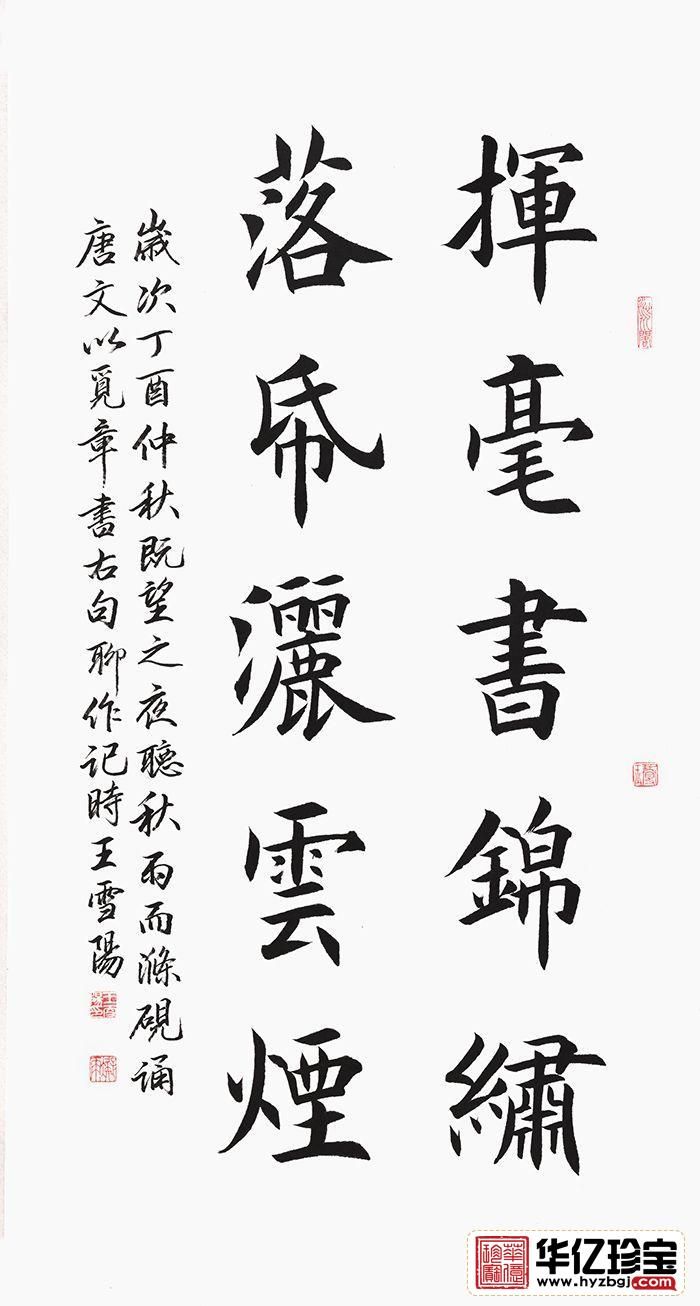 揮毫書錦繡
落帋灑雲煙
歲次丁酉仲秋既望之夜聽秋雨而滌硯誦
唐文以覓章書右句聊作记時王雪陽
华亿珍宝
www.hyzbgj.com